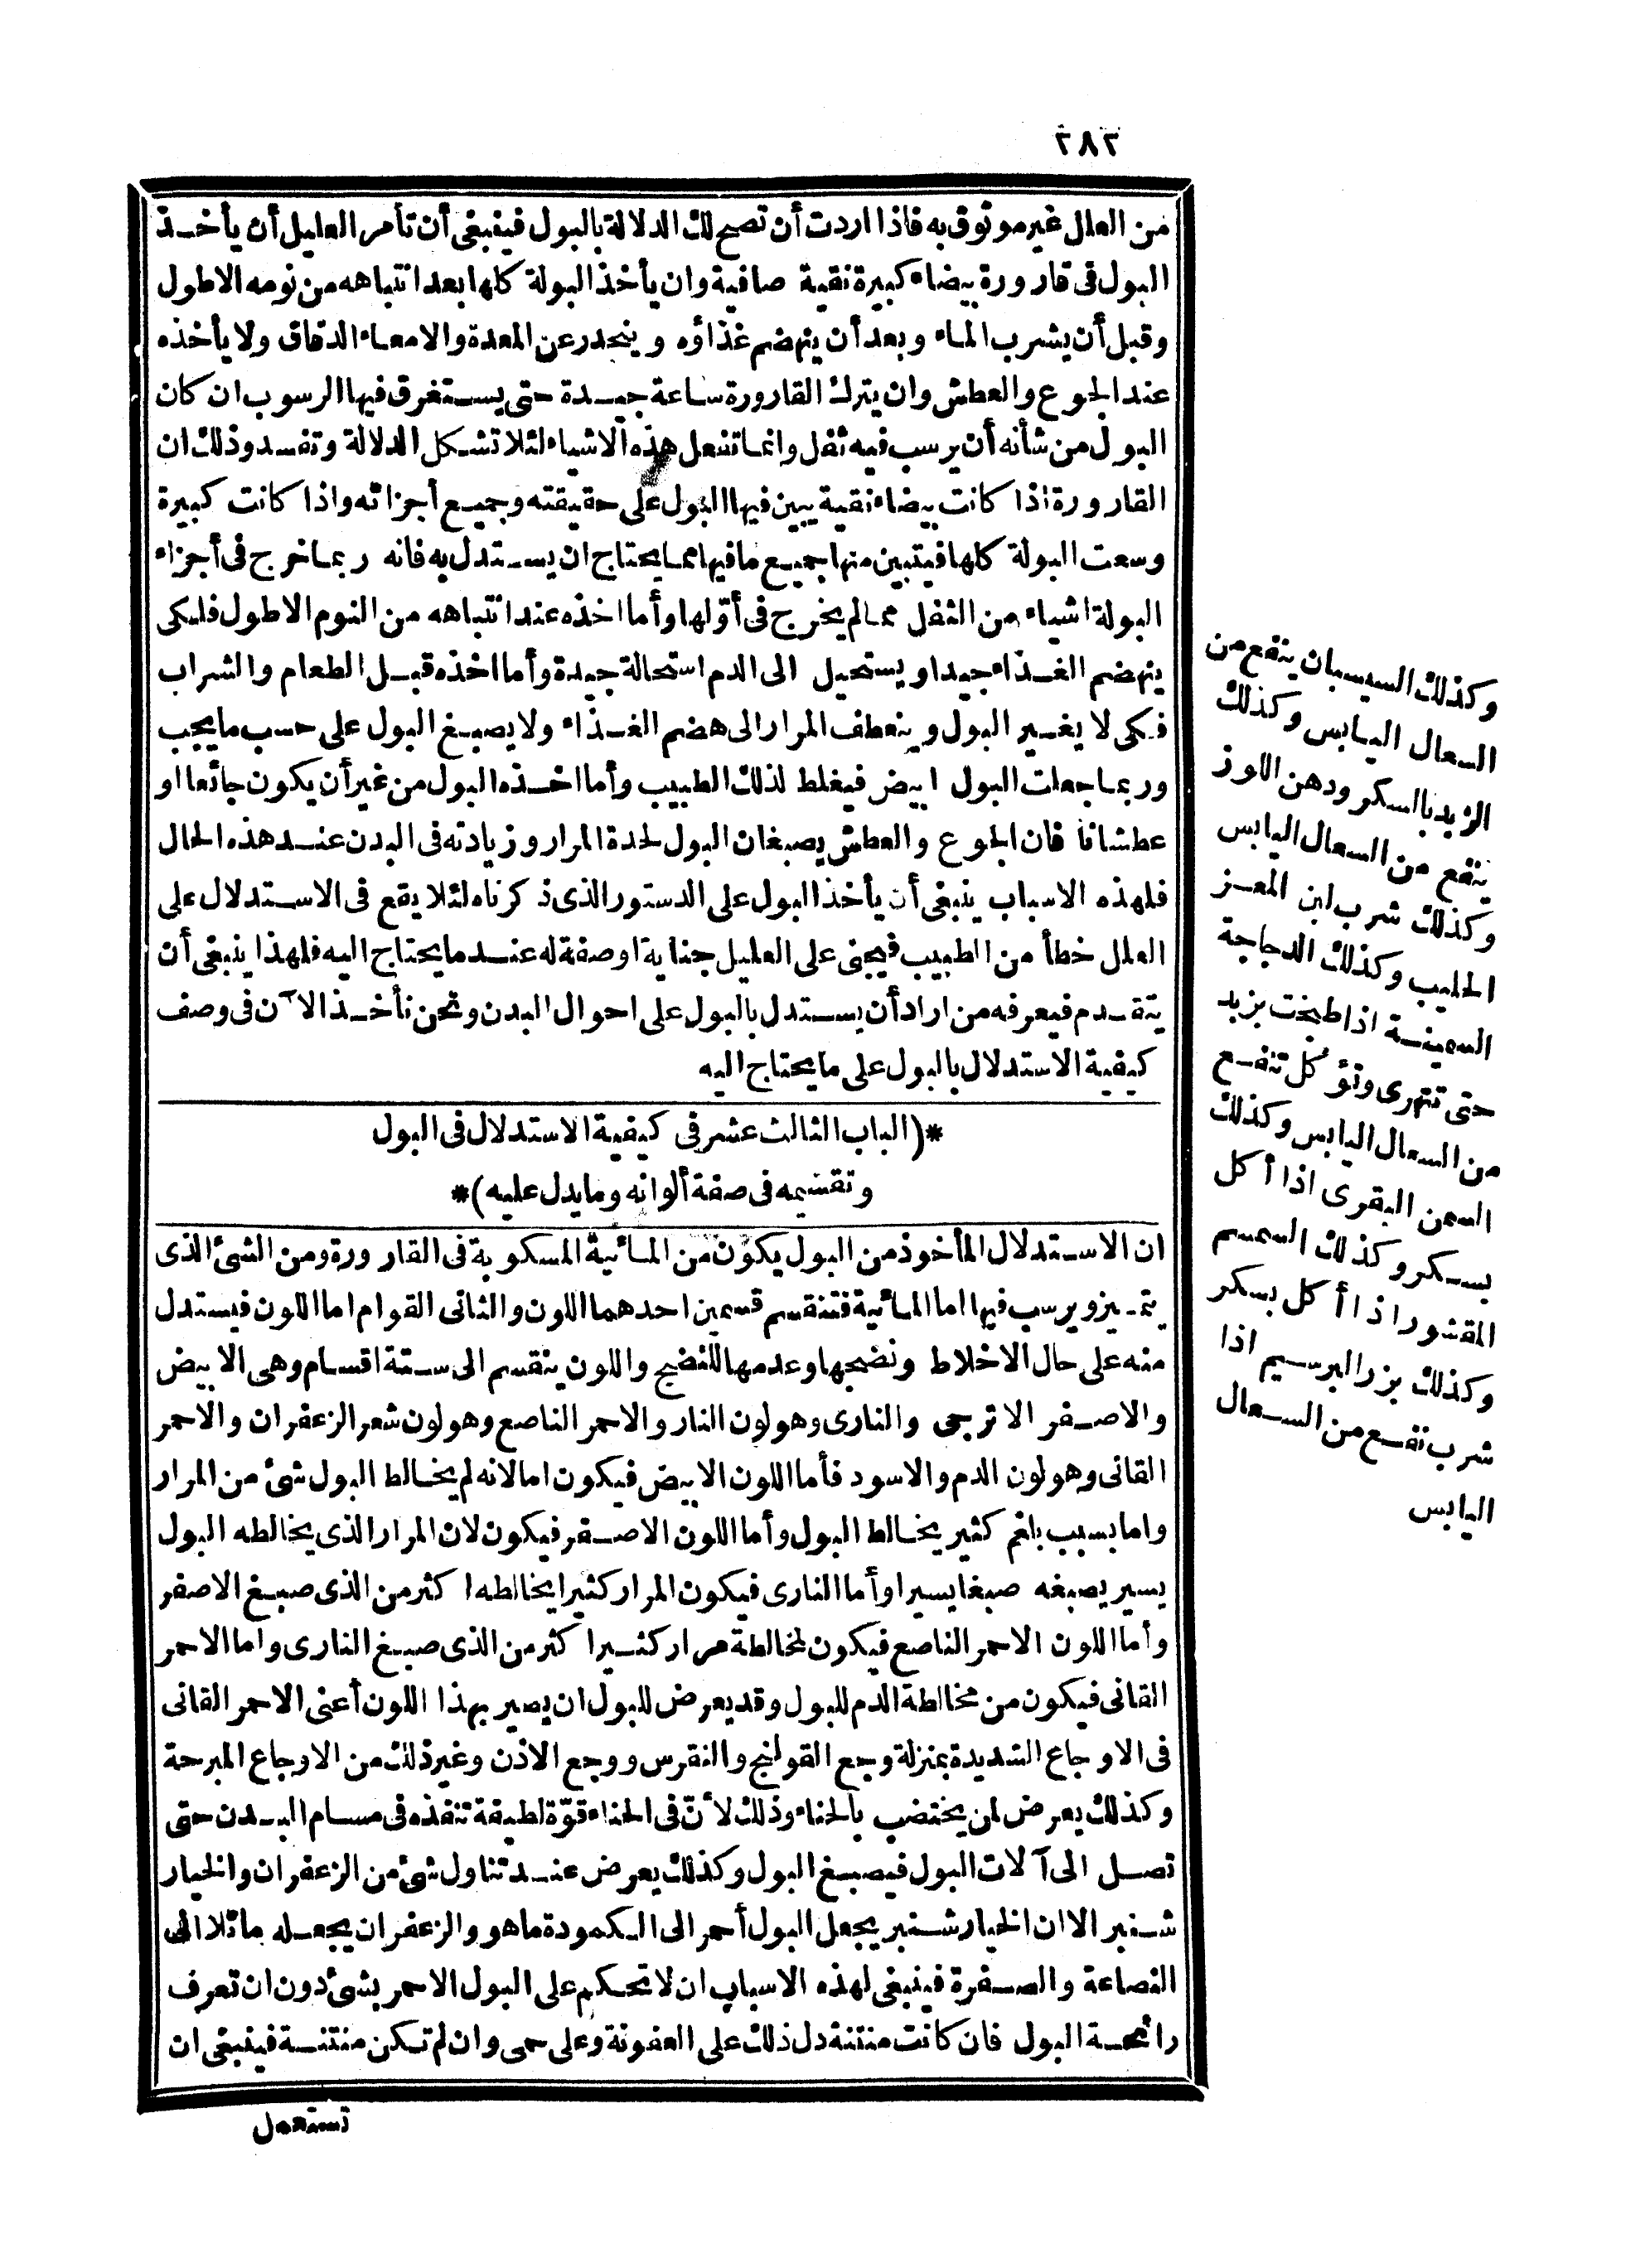 ٢٨٣
من العلل غير موثوق به فاذا اردت أن تصح لك الدلالة بالبول فينبغى أن تأمر العليل أن يأخـذ
البول فى قارورة بيضاء كبيرة نقية صافية وان يأخذ البولة كلها بعد انتباهه من نومه الاطول
وقبل أن يشرب الماء وبعد أن ينهضم غذاؤه وينحدر عن المعدة والامعاء الدقاق ولا يأخذه
عند الجوع والعطش وان يترك القارورة ساعة جيـدة حتى يسـتغرق فيها الرسوب ان كان
البول من شأنه أن يرسب فيه ثفل وانما تفعل هذه الاشياء لئلا تشكل الدلالة وتفسد وذلك ان
القارورة اذا كانت بيضاء نقية يبين فيها البول على حقيقته وجميع أجزائه واذا كانت كبيرة
وسعت البولة كلها فيتبين منها جميع ما فيها مما يحتاج ان يسـتدل به فانه ربما خرج فى أجزاء
البولة اشياء من الثفل مما لم يخرج فى أوّلها وأما اخذه عند انتباهه من النوم الاطول فلكى
ينهضم الغـذاء جيدا ويستحيل الى الدم استحالة جيدة وأما اخذه قبـل الطعام والشراب
فكى لا يغـير البول وينعطف المرار الى هضم الغـذاء ولا يصبـغ البول على حسب ما يجب
وربما جعلت البول ابيض فيغلط لذلك الطبيب وأما اخـذه البول من غير أن يكون جائعا او
عطشانا فان الجوع والعطش يصبغان البول لحدة المرار وزيادته فى البدن عنـد هذه الحال
فلهذه الاسباب ينبغى أن يأخذ البول على الدستور الذى ذكرناه لئلا يقع فى الاسـتدلال على
العلل خطأ من الطبيب فيجنى على العليل جناية اوصفة له عنـد ما يحتاج اليه فلهذا ينبغى أن
يتقـدم فيعرفه من اراد أن يسـتدل بالبول على احوال البدن ونحن نأخـذ الآن فى وصف
كيفية الاستدلال بالبول على ما يحتاج اليه
*(الباب الثالث عشر فى كيفية الاستدلال فى البول
وتقسيمه فى صفة ألوانه وما يدل عليه)*
ان الاسـتدلال المأخوذ من البول يكون من المـائية المسكوبة فى القارورة ومن الشئ الذى
يتمـيز ويرسب فيها اما المـائية فتنقسم قسمين احدهما اللون والثانى القوام اما اللون فيستدل
منه على حال الاخلاط ونضجها وعدمها للنضج واللون ينقسم الى سـتة اقسام وهى الابيض
والاصـفر الاترجى والنارى وهو لون النار والاحمر الناصع وهو لون شعر الزعفران والاحمر
القانى وهو لون الدم والاسود فأما اللون الابيض فيكون اما لانه لم يخـالط البول شئ من المرار
واما بسبب بلغم كثير يخـالط البول وأما اللون الاصـفر فيكون لان المرار الذى يخالطه البول
يسير يصبغه صبغا يسيرا وأما النارى فيكون المرار كثيرا يخالطه اكثر من الذى صبـغ الاصفر
وأما اللون الاحمر الناصع فيكون لمخالطة مرار كثـير اكثر من الذى صبـغ النارى واما الاحمر
القانى فيكون من مخالطة الدم للبول وقد يعرض للبول ان يصير بهذا اللون أعنى الاحمر القانى
فى الاوجاع الشديدة بمنزلة وجع القولنج والنقرس ووجع الاذن وغير ذلك من الاوجاع المبرحة
وكذلك يعرض لمن يختضب بالحناء وذلك لأنّ فى الحناء قوّة لطيفة تنفذه فى مسـام البـدن حتى
تصـل الى آلات البول فيصبـغ البول وكذلك يعرض عنـد تناول شئ من الزعفران والخيار
شـنبر الا ان الخيار شـنبر يجعل البول أحمر الى الكمودة ما هو والزعفران يجعـله مائلا الى
النصاعة والصـفرة فينبغى لهذه الاسباب ان لا تحكم على البول الاحمر بشئ دون ان تعرف
رائحـة البول فان كانت منتنة دل ذلك على العفونة وعلى حمى وان لم تكن منتنـة فينبغى ان
تستعمل
وكذلك السيسبان ينفع من
السعال اليـابس وكذلك
الزبد بالسكر ودهن اللوز
ينفع من السعال اليابس
وكذلك شرب لبن المعـز
الحليب وكذلك الدجاجة
السمينـة اذا طبخت بزبد
حتى تتهرى وتؤكل تنفـع
من السعال اليابس وكذلك
السمن البقرى اذا أكل
بسـكر وكذلك السمسم
المقشور اذا أكل بسكر
وكذلك بزر البرسـيم اذا
شرب نفـع من السـعال
اليابس